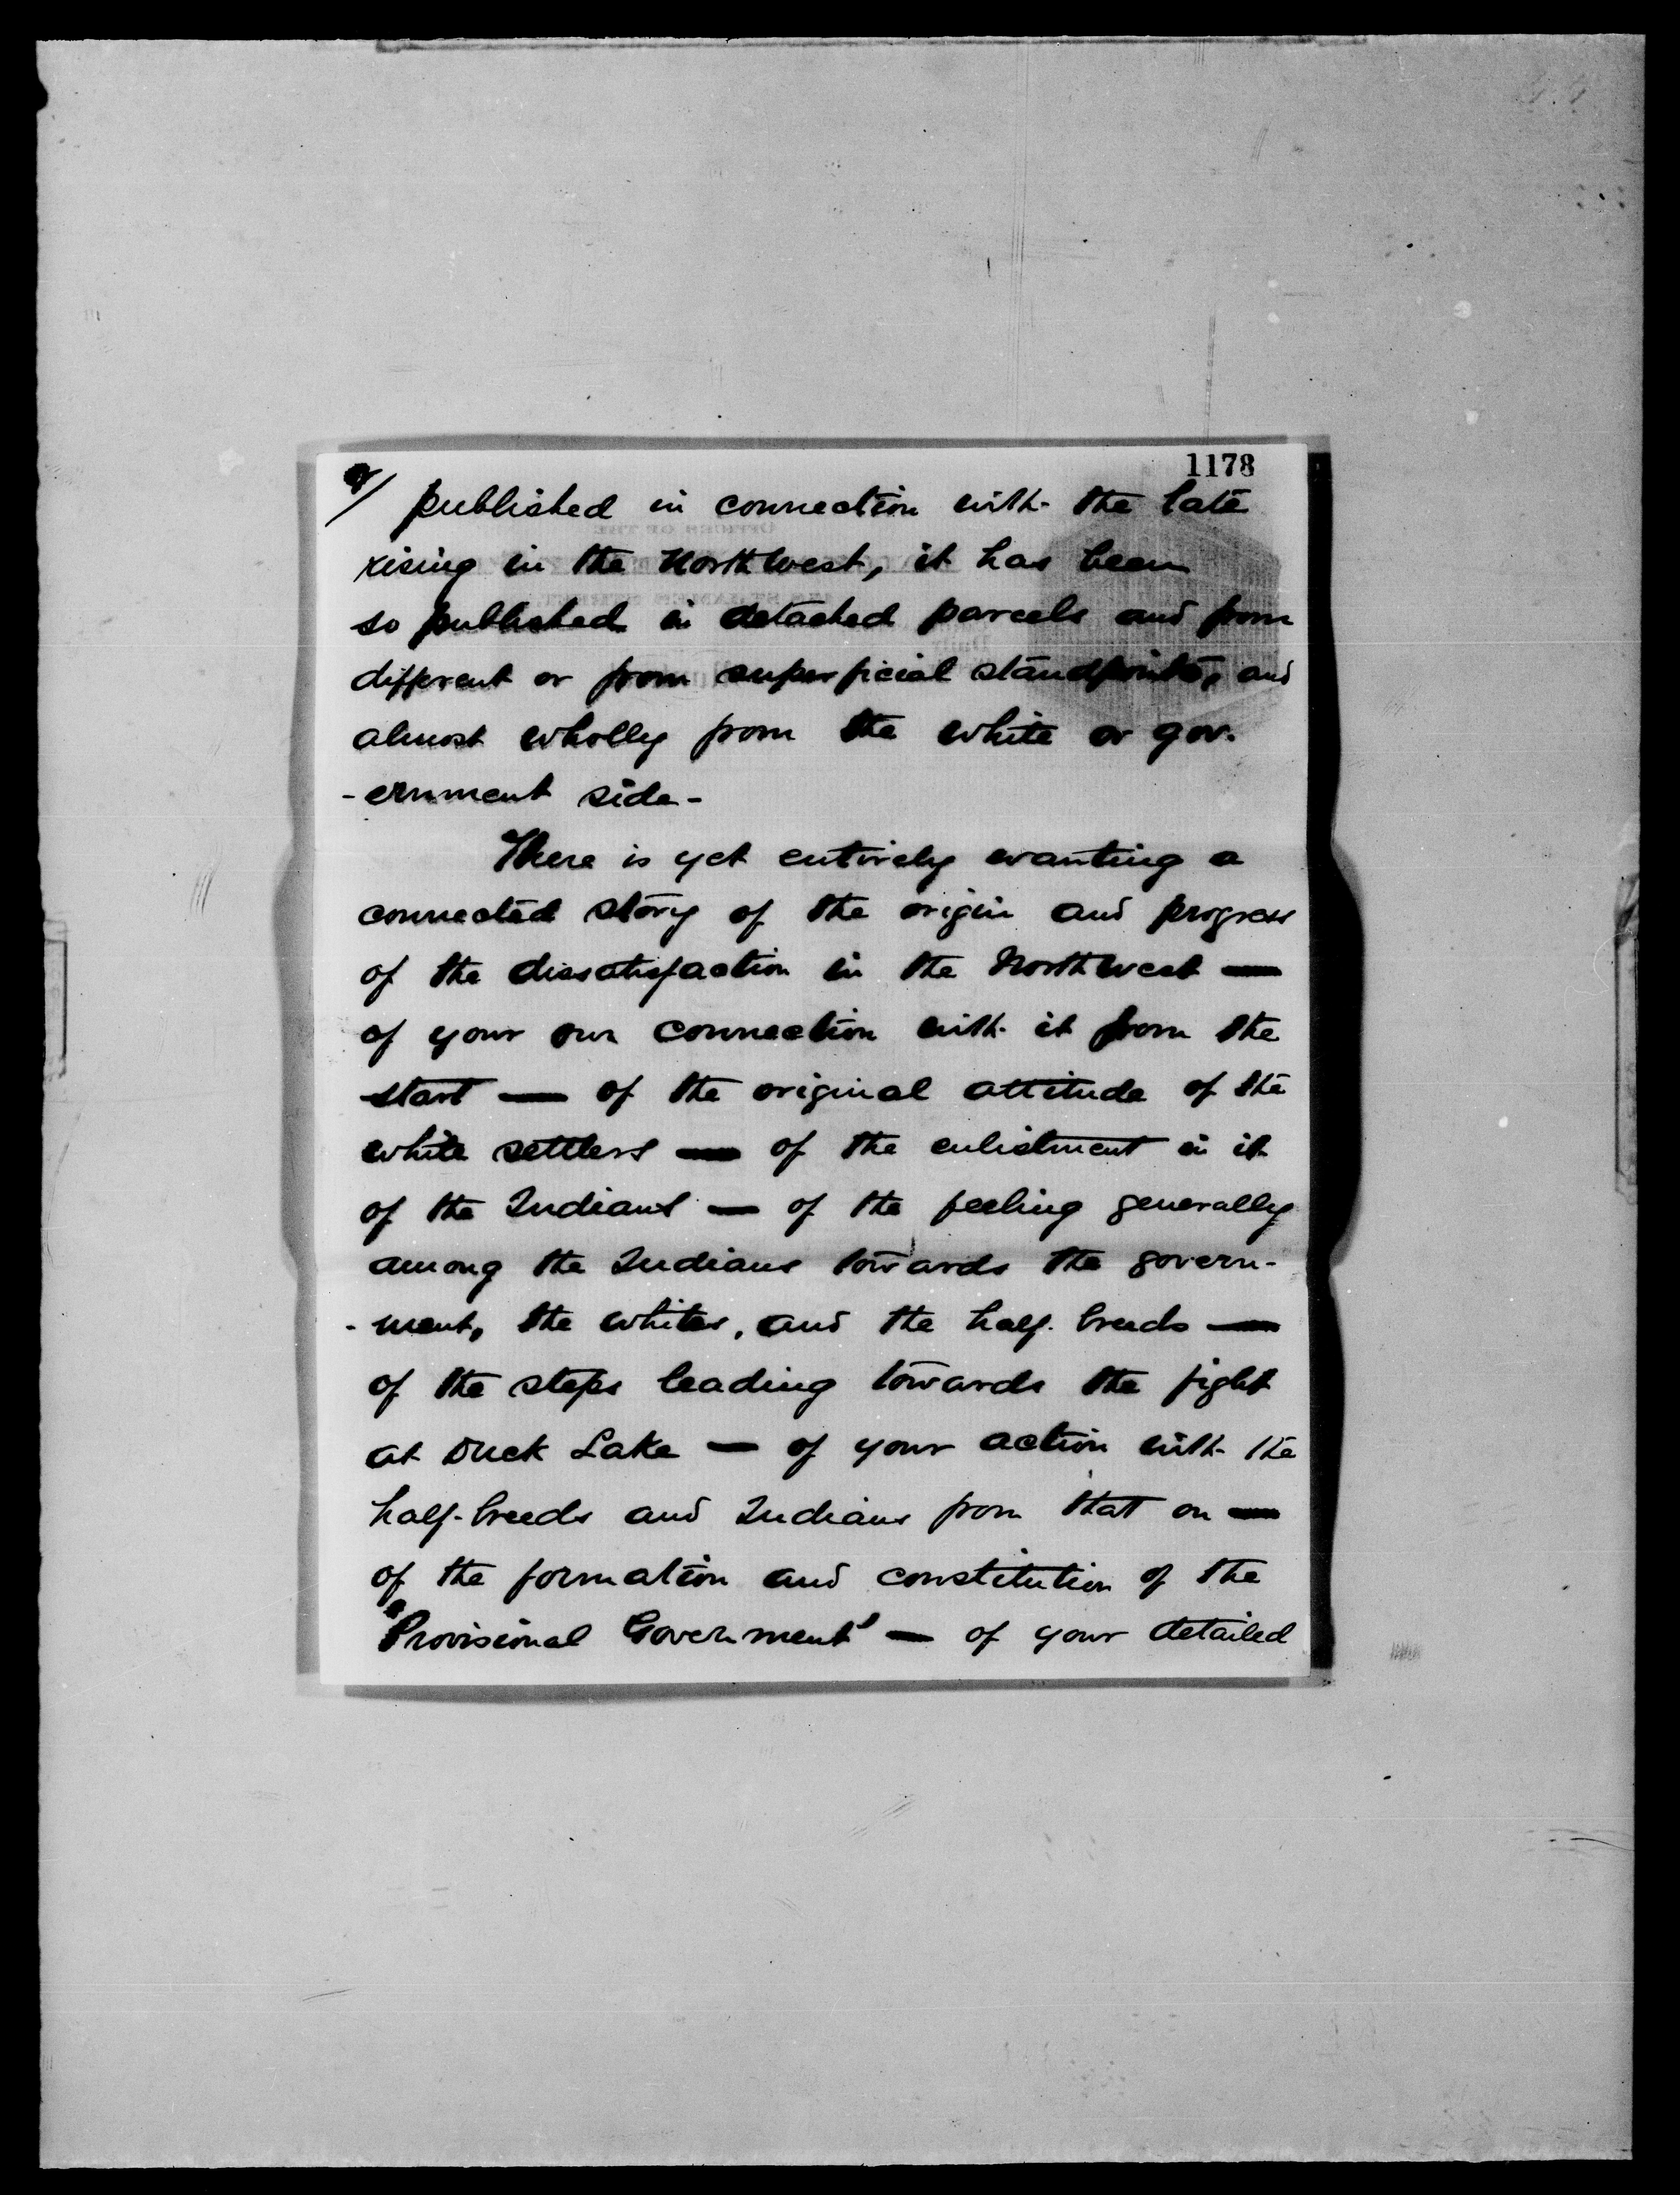 1178
2/ published in connection with the late
rising in the Northwest, it has been
so published in detached parcels and from
different or from superficial standpoints, and
almost wholly from the white or gov.
-ernment side-
There is yet entirely wanting a
connected story of the origin and progress
of the dissatisfaction in the Northwest —
of your own connection with it from the
start — of the original attitude of the
white settlers — of the enlistment in it
of the Indians — of the feeling generally
among the Indians towards the govern-
-ment, the whites, and the half-breeds —
of the steps leading towards the fight
at Duck Lake — of your action with the
half-breeds and Indians from that on —
of the formation and constitution of the
"Provisional Government" — of your detailed